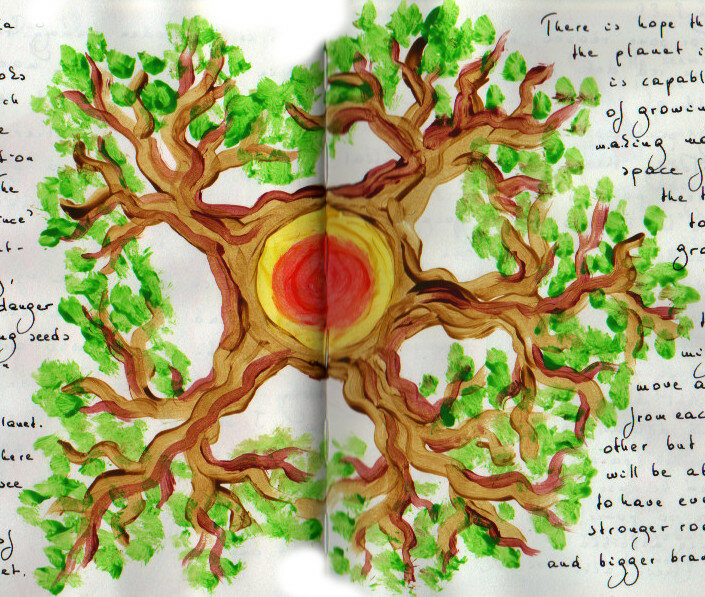 danger
seeds
lanet.
here
of
et.
There is hope th
the planet i
is capabl
of growin
making mo
space f
the t
to
gro
mi
move a
from eac
other but
will be ab
to have eve
stronger roo
and bigger bran